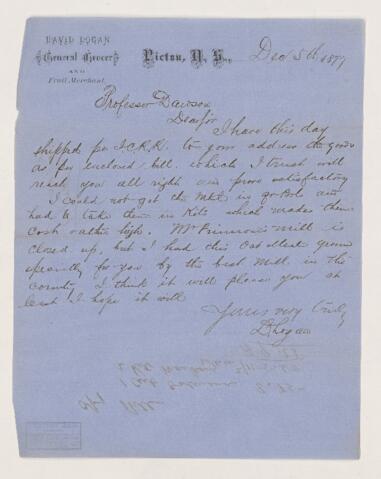 DAVID LOGAN
General Grocer
AND
Fruit Merchant.
Pictou, N. S.,
Dec 5th 1877
Professor Dawson
Dear Sir
I have this day
shipped per I.C.R.R. to your address the goods
as per enclosed bill. which I trust will
reach you all right and prove satisfactory
I could not get the in and
had to take them in Kits which makes them
cost rather high. Mill is
closed up, but I had this Oat Meal ground
specially for you by the best Mill in the
County I think it will please you at
least I hope it will
Yours very truly
D Logan